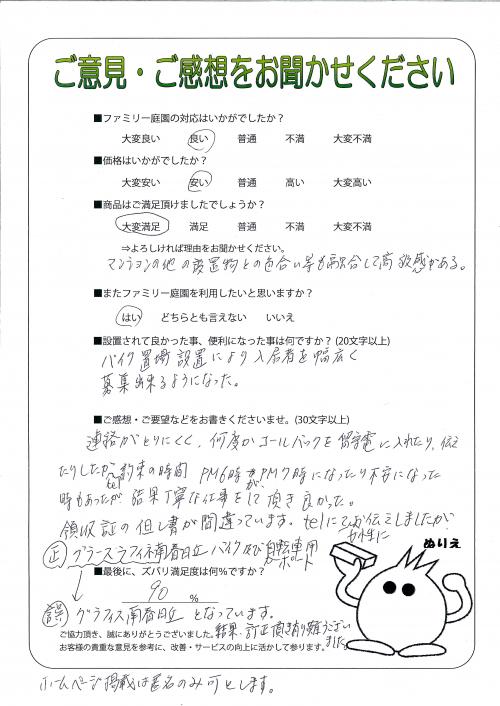 ご意見・ご感想をお聞かせください
■ファミリー庭園の対応はいかがでしたか？
大変良い 良い 普通 不満 大変不満
■価格はいかがでしたか？
大変安い 安い 普通 高い 大変高い
■商品はご満足頂けましたでしょうか？
大変満足 満足 普通 不満 大変不満
⇒よろしければ理由をお聞かせください。
マンションの他の設置物との色合い等も融合して高級感がある。
■またファミリー庭園を利用したいと思いますか？
はい どちらとも言えない いいえ
■設置されて良かった事、便利になった事は何ですか？(20文字以上)
バイク置場設置により入居者を幅広く
募集出来るようになった。
■ご感想・ご要望などをお書きくださいませ。(30文字以上)
連絡がとりにくく、何度かコールバックを留守電に入れたり、伝え
たりしたが、tel約束の時間 PM6時がPM7時になったり不安になった
時もあったが、結果丁寧な仕事をして頂き良かった。
領収証の但し書が間違っています。telにてお伝えしましたが
正 グラースラフィネ南春日丘 バイク及び自転車用
カーポート
ぬりえ
■最後に、ズバリ満足度は何％ですか？
90 %
誤 グラフィス南春日丘 となっています。
ご協力頂き、誠にありがとうございました。結果、訂正頂き有り難うござい
お客様の貴重な意見を参考に、改善・サービスの向上に活かして参ります。ました。
ホームページ掲載は匿名のみ可とします。